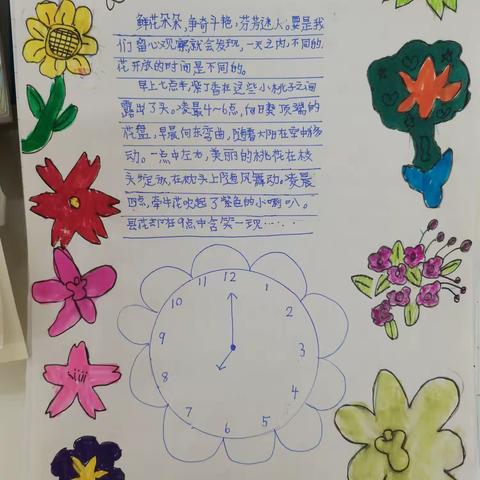 鲜花朵朵,争奇斗艳,芬芳迷人。要是我
们留心观察就会发现,一天之内,不同的
花开放的时间是不同的。
早上七点半,紫丁香在这些小桃子之间
露出了头。凌晨4~6点,向日葵顶端的
花盘,早晨向东弯曲,随着太阳在空中移
动。一点中左右,美丽的桃花在枝
头绽放,在枝头上随风舞动。凌晨
四点,牵牛花吹起了紫色的小喇叭。
昙花却在9点中含笑一现……
12
11 1
10 2
9 3
8 4
7 5
6